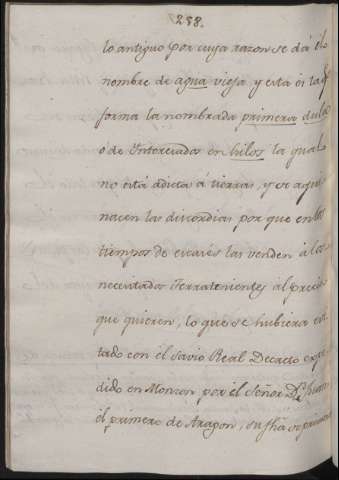 258.
lo antiguo por cuya razon se dá el
nombre de agua vieja y esta es la q.e
forma la nombrada primera dula
o de Interciadas en hilos la qual
no está adicta á tierras, y de aqui
nacen las discordias por que en los
tiempos de escasés las venden á los
necesitados Terratenientes al precio
que quieren, lo que se hubiera evi-
tado con el Savio Real Decreto expe-
dido en Monzon por el Señor Dn. Juan
el primero de Aragon, su fha